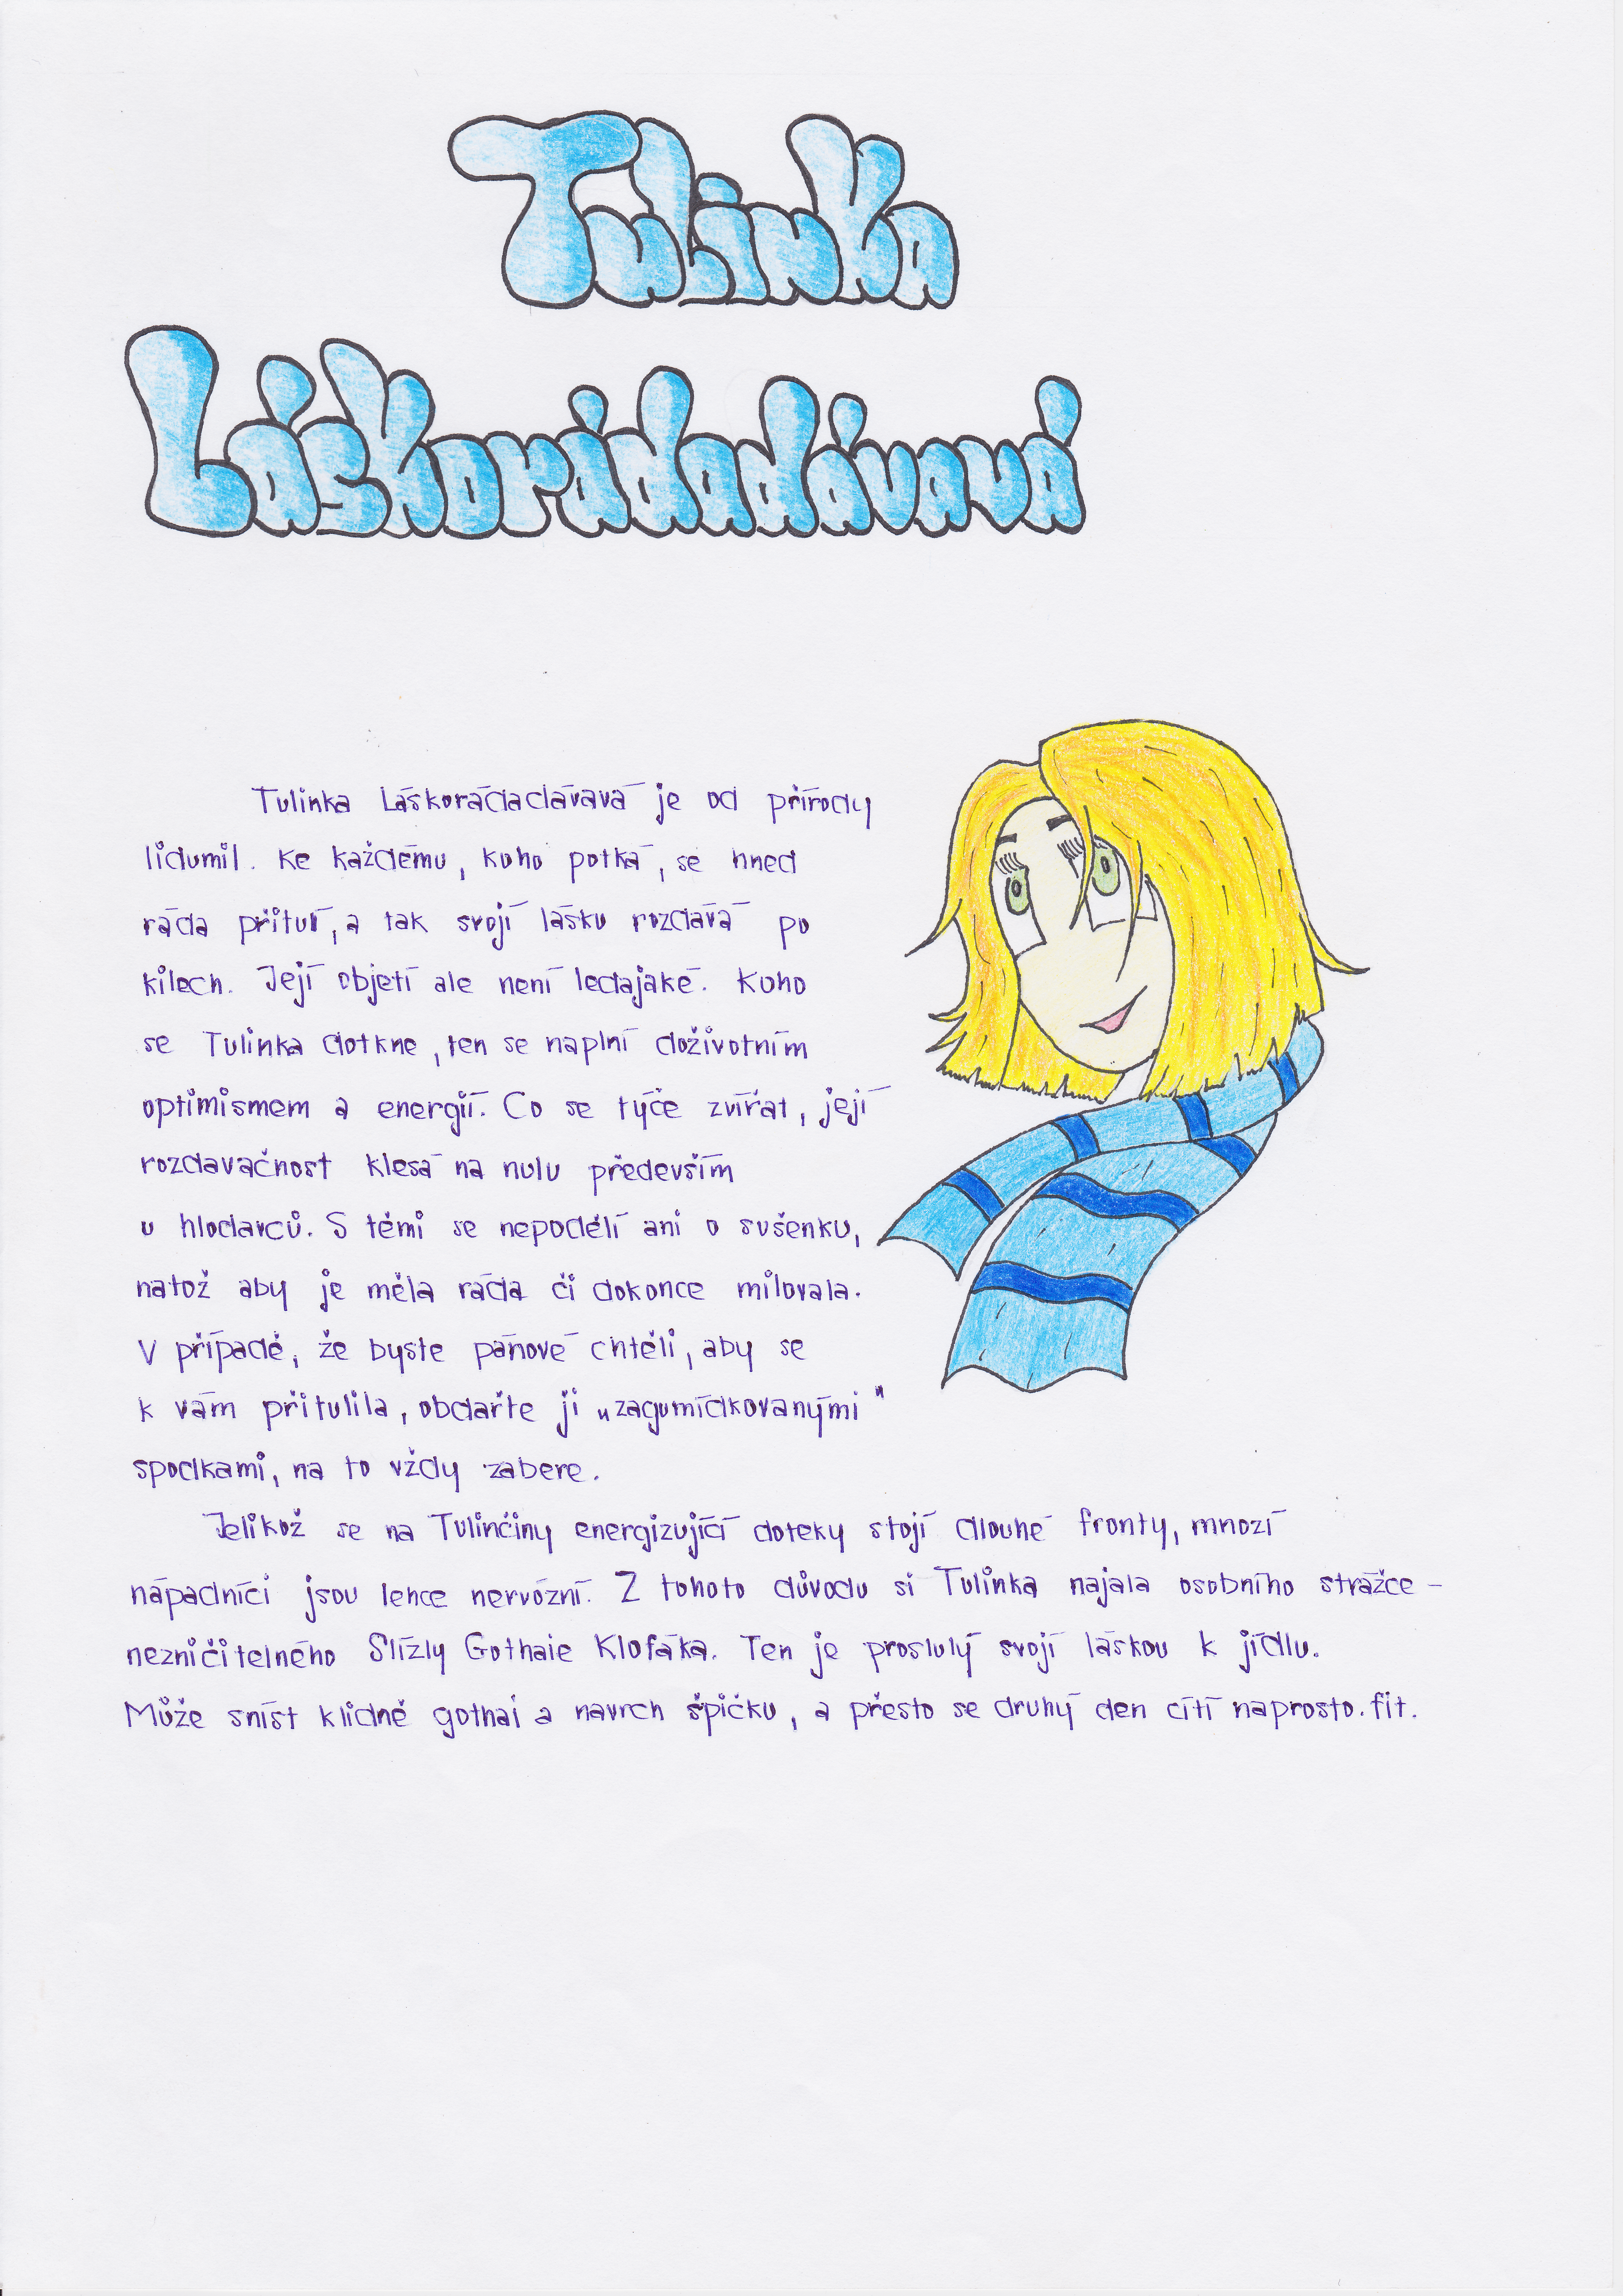 Tulinka
Láskorádadávavá
Tulinka Láskorádadávavá je od přírody
lidumil. Ke každému, koho potká, se hned
ráda přitulí, a tak svojí lásku rozdává po
kilech. Její objetí ale není ledajaké. Koho
se Tulinka dotkne, ten se naplní doživotním
optimismem a energií. Co se týče zvířat, její
rozdavačnost klesá na nulu především
u hlodavců. S těmi se nepodělí ani o sušenku,
natož aby je měla ráda či dokonce milovala.
V případě, že byste pánové chtěli, aby se
k vám přitulila, obdařte ji „zagumídkovanými"
spodkami, na to vždy zabere.
Jelikož se na Tulinčiny energizující doteky stojí dlouhé fronty, mnozí
nápadníci jsou lehce nervózní. Z tohoto důvodu si Tulinka najala osobního strážce –
nezničitelného Slízly Gothaie Klofáka. Ten je proslulý svojí láskou k jídlu.
Může sníst klidně gothaj a navrch špičku, a přesto se druhý den cítí naprosto fit.